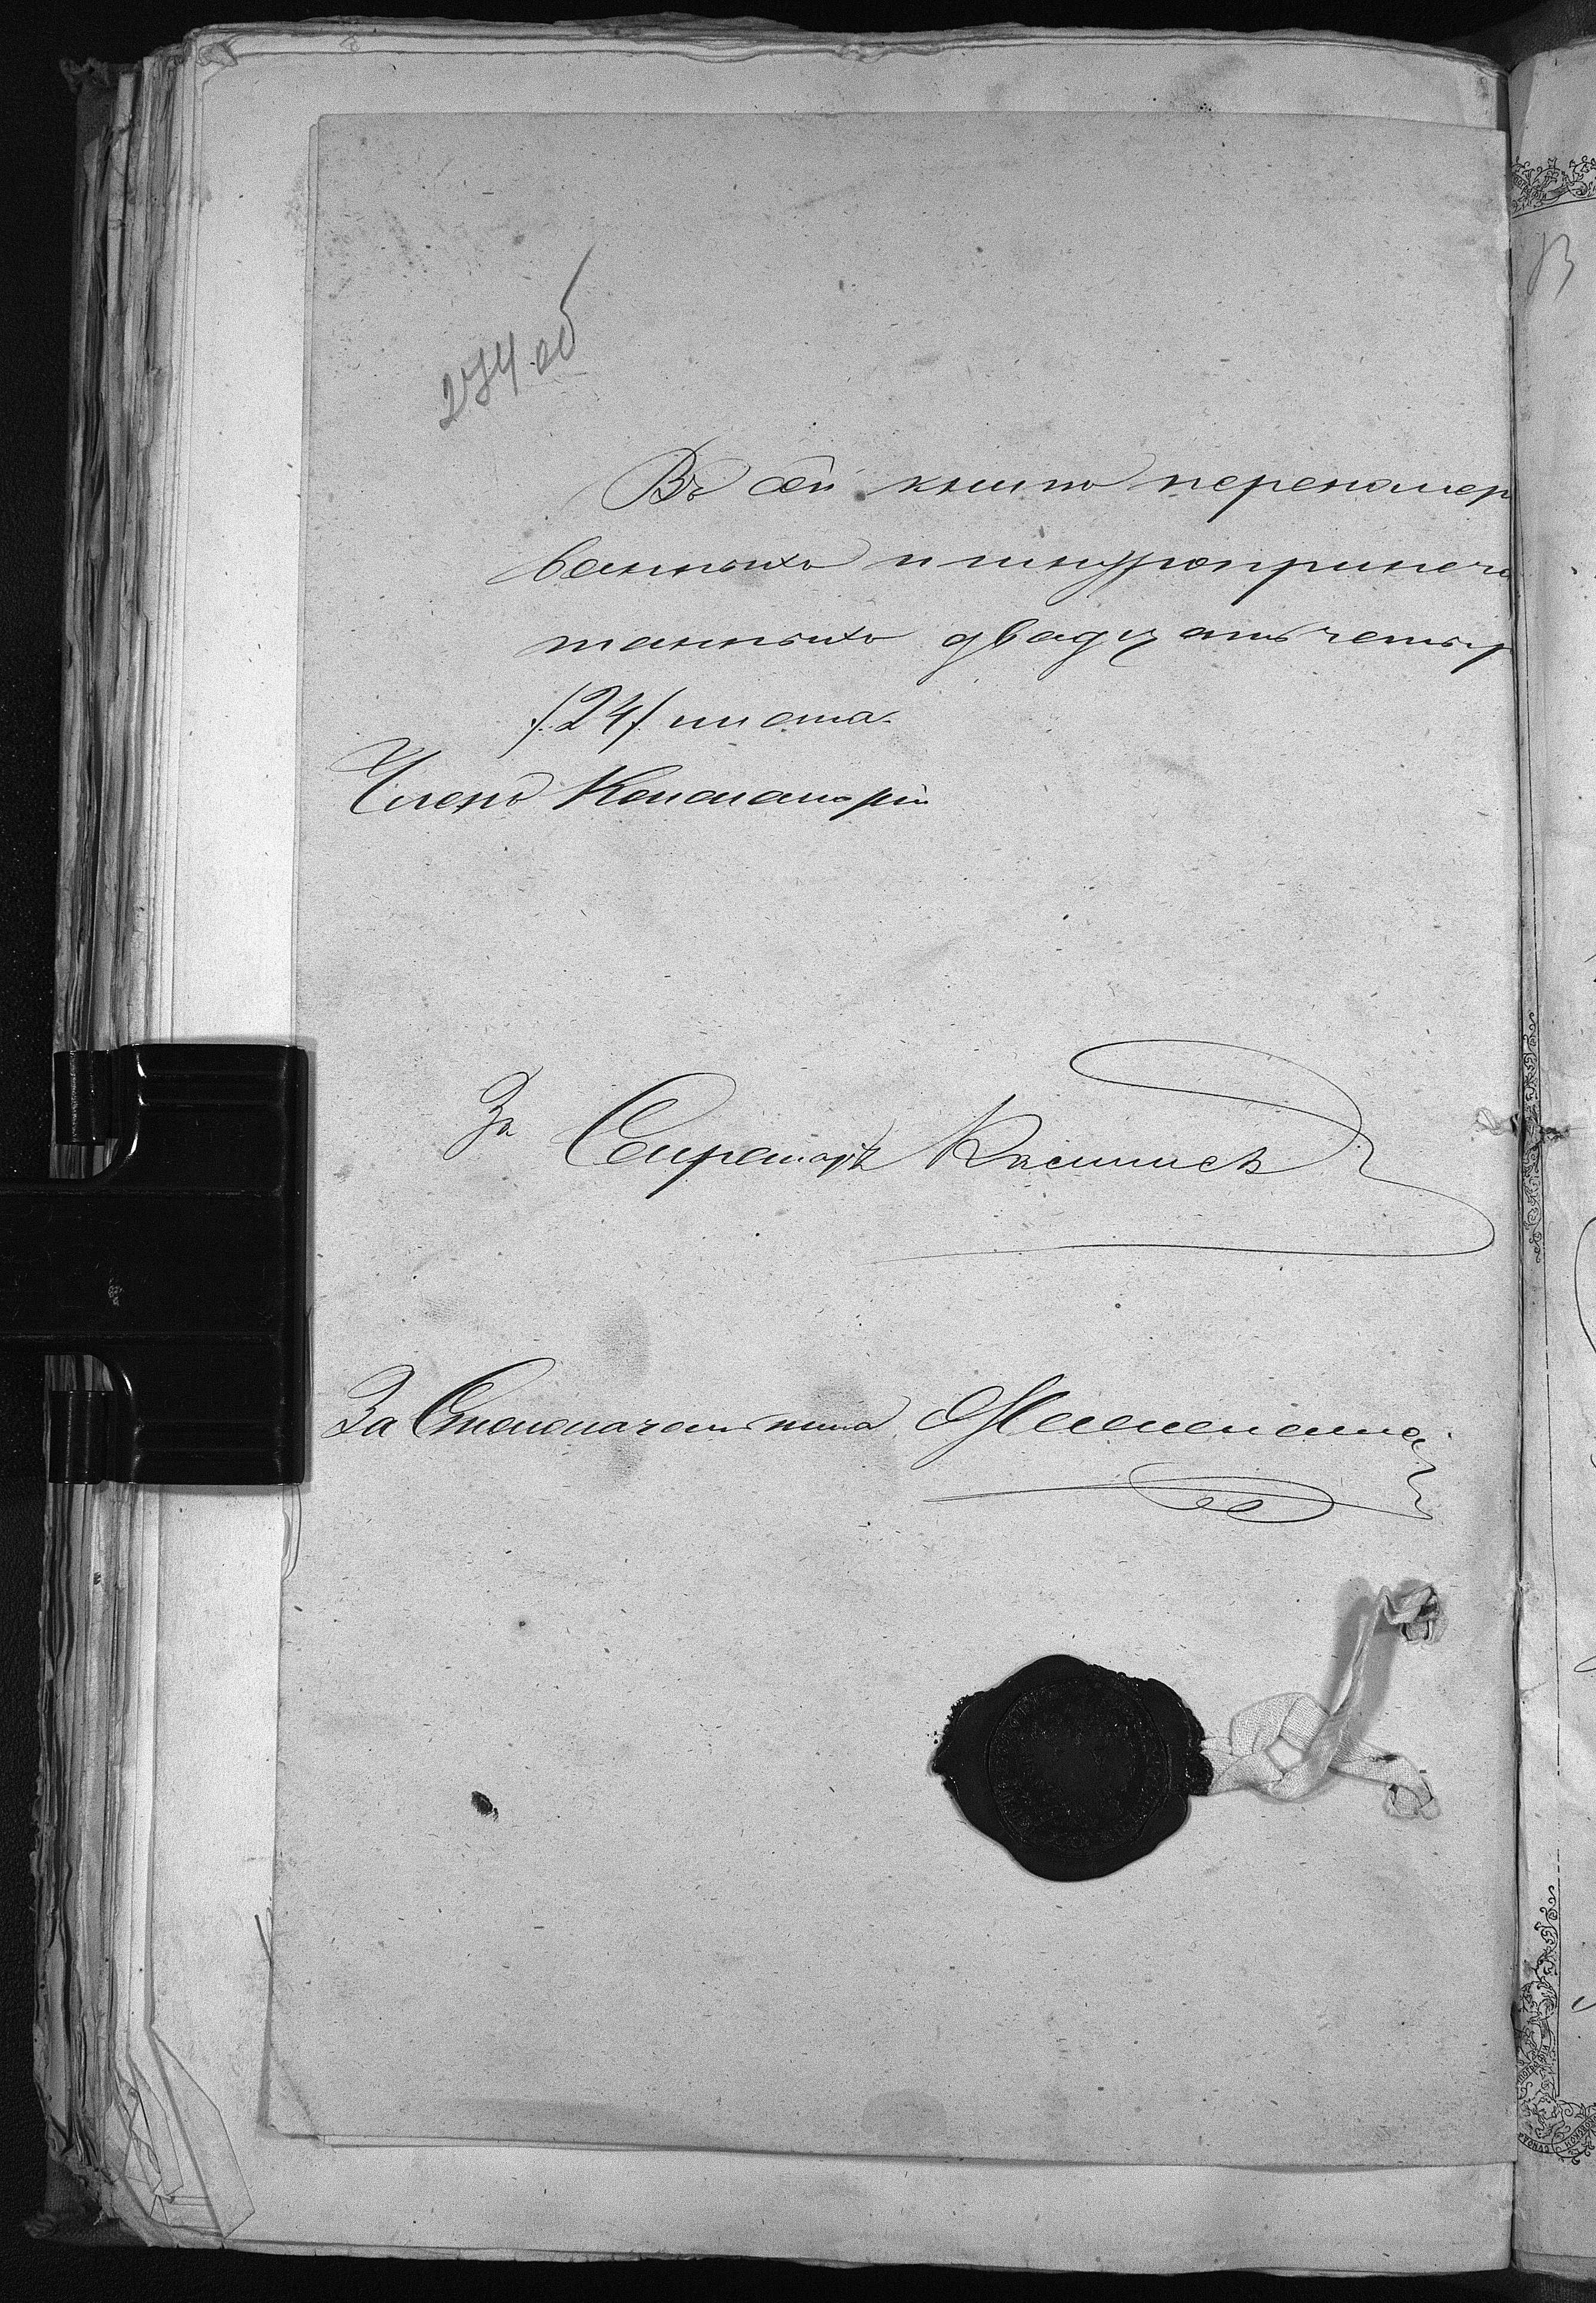 274 об
Въ сей книгѣ перенумер
ванныхъ и шнуроприпеча
танныхъ двадцать четыр
/:24/: листа.
Членъ Консисторіи
За Секретаря
За Столоначальника